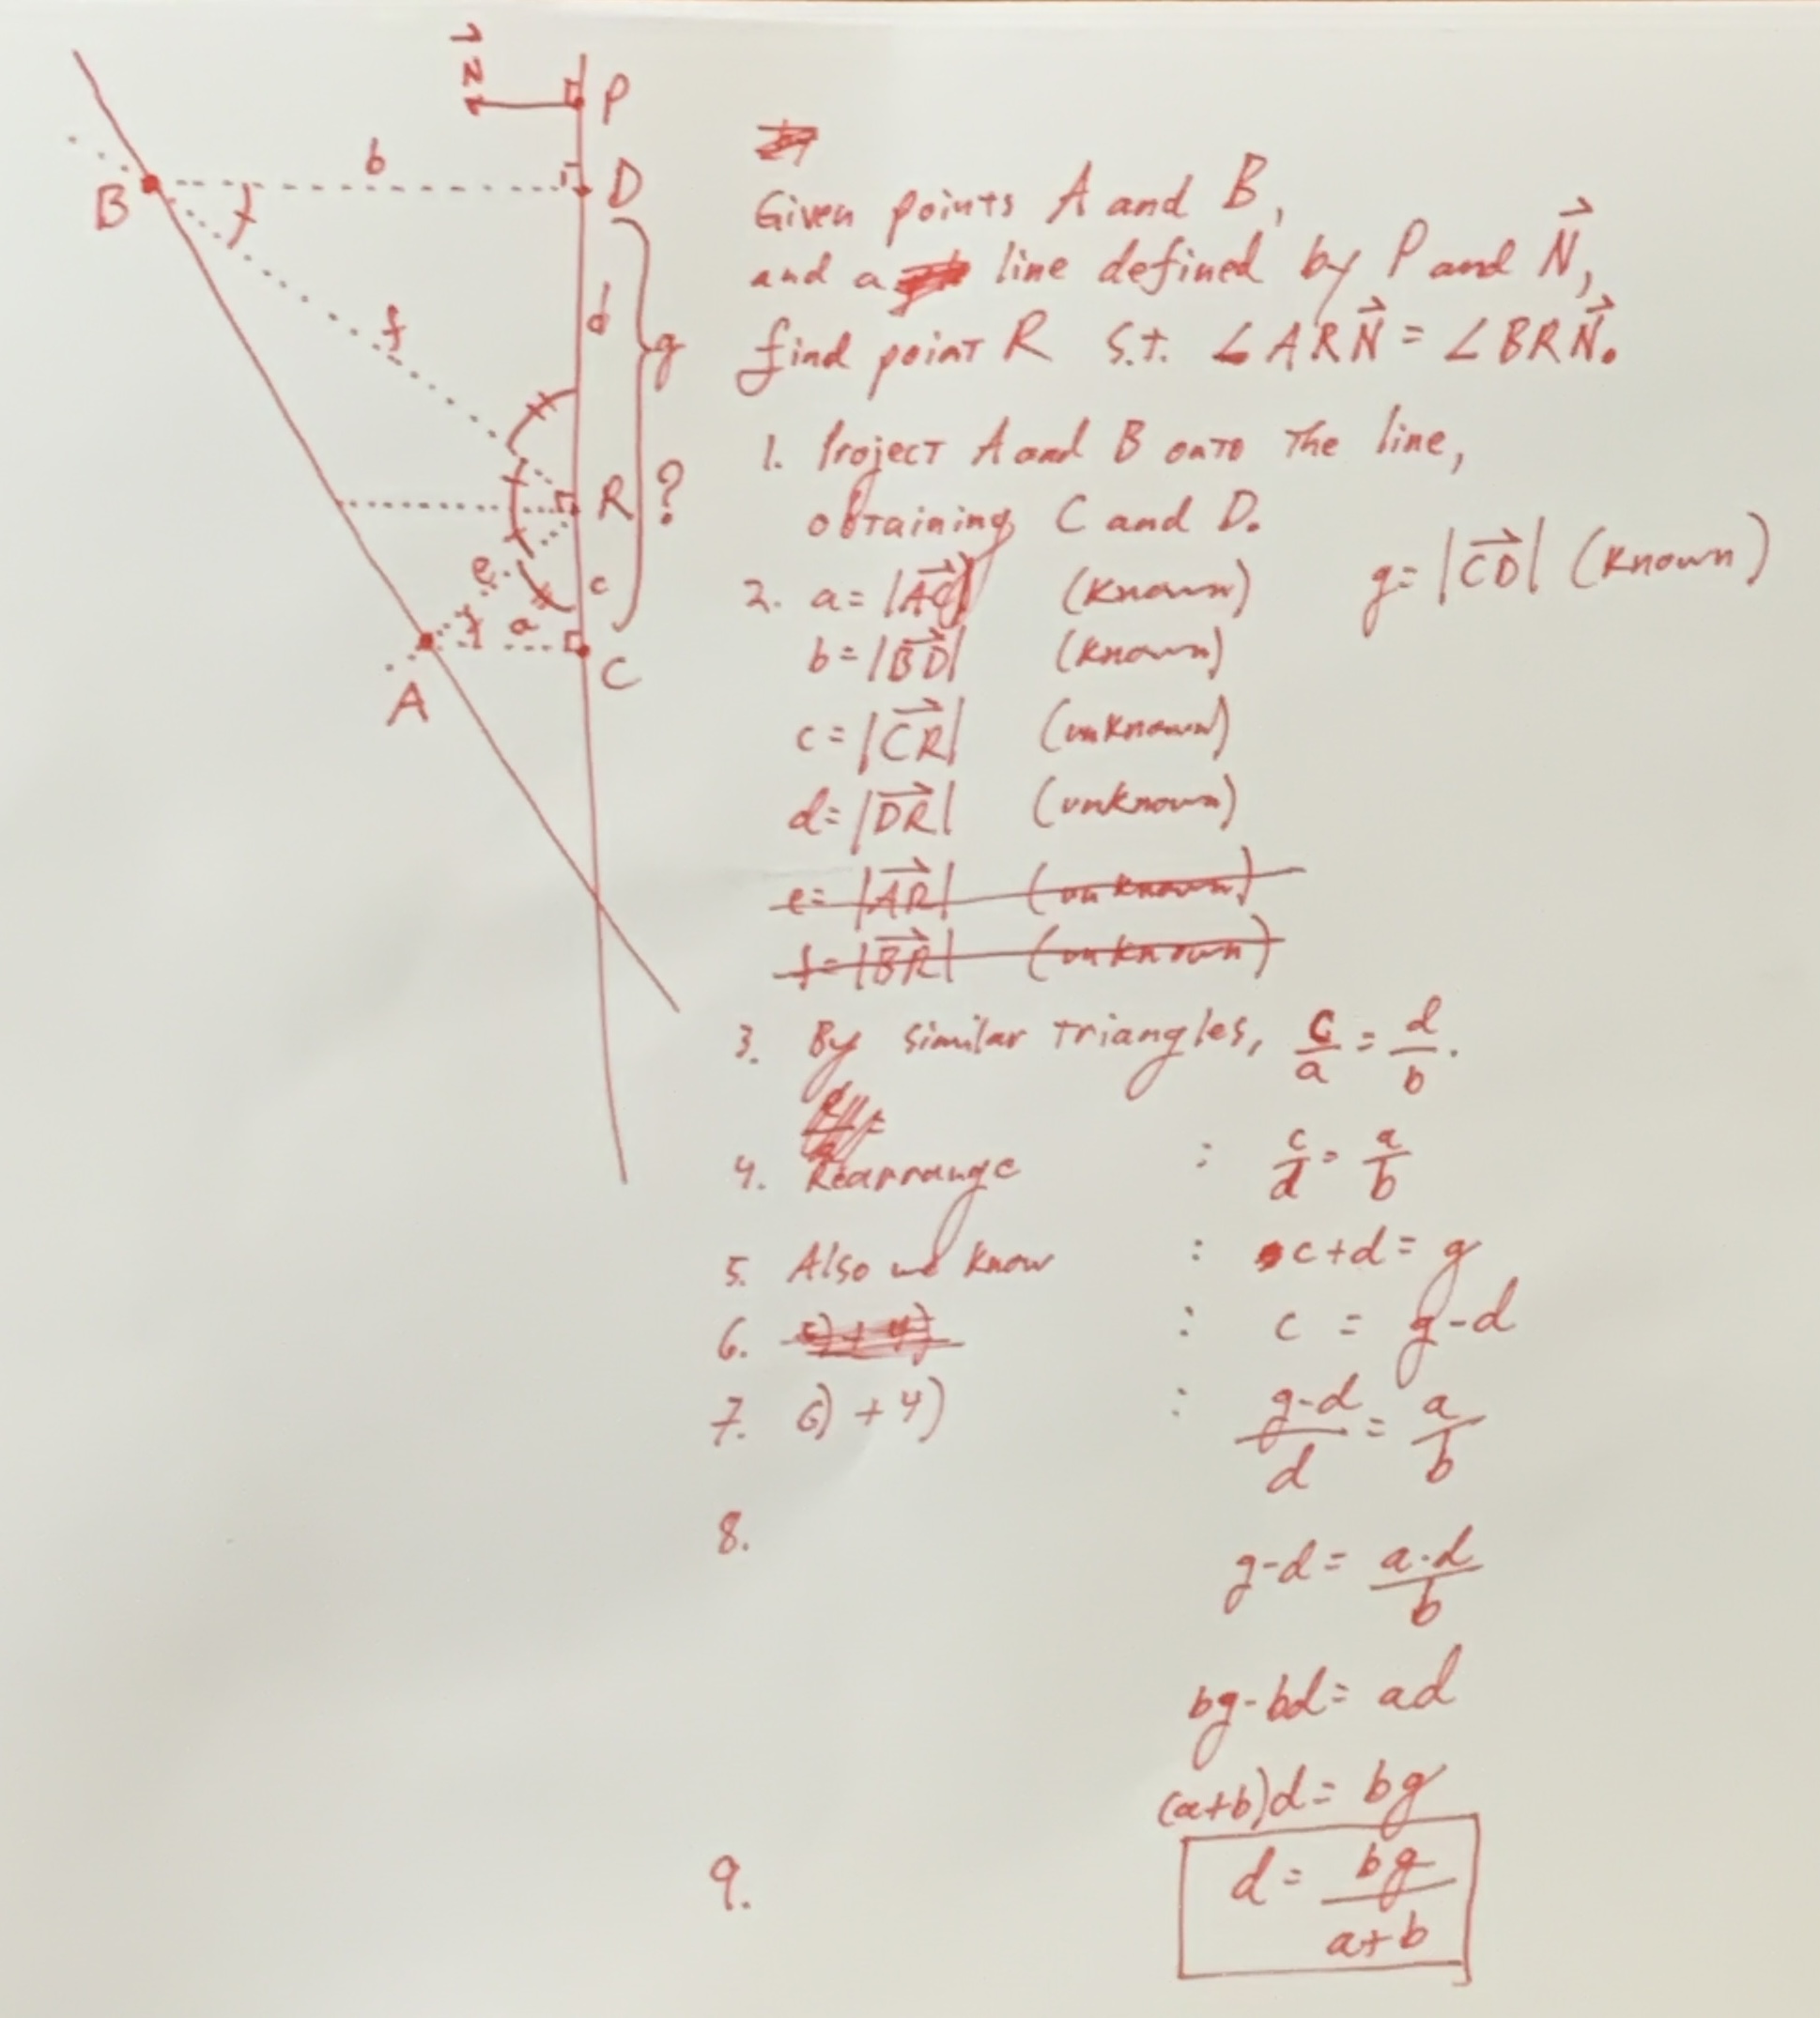 N⃗
P
B
b
D
f
d
g
R
?
e
c
a
A
C
Given points A and B,
and a line defined by P and N⃗,
find point R s.t. ∠ARN⃗ = ∠BRN⃗.
1. Project A and B onto the line,
obtaining C and D.
2. a = |AC⃗| (known) g = |CD⃗| (known)
b = |BD⃗| (known)
c = |CR⃗| (unknown)
d = |DR⃗| (unknown)
e = |AR⃗| (unknown)
f = |BR⃗| (unknown)
3. By similar triangles, c/a = d/b.
4. Rearrange : c/d = a/b
5. Also we know : c+d = g
6. : c = g-d
7. 6) + 4) : g-d/d = a/b
8.
g-d = a·d/b
bg-bd = ad
(a+b)d = bg
9. d = bg/a+b